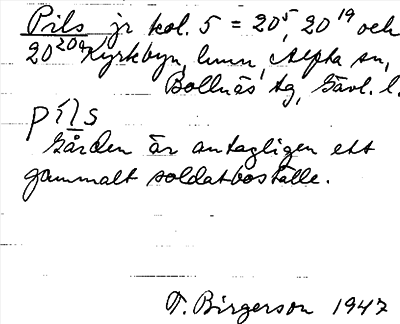 Pils jr kol. 5 = 20⁵, 20¹⁹ och
20²⁰ᵃ Kyrkbyn, hmn, Alfta sn,
Bollnäs tg, Gävl. l.
píls
Gården är antagligen ett
gammalt soldatboställe.
T. Birgerson 1947